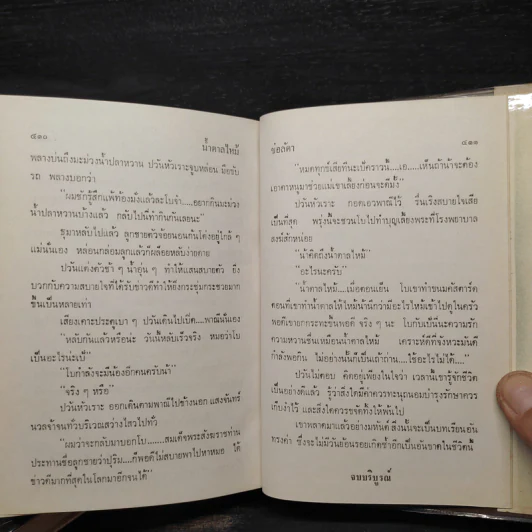 ๔๑๐ น้ำตาลไหม้
พลางบ่นถึงมะม่วงน้ำปลาหวาน ปวันหัวเราะจูบหล่อน มือขับ
รถ พลางบอกว่า
"ผมชักรู้สึกแพ้ท้องมั่งแล้วละใบจ๋า.....อยากกินมะม่วง
น้ำปลาหวานบ้างแล้ว กลับไปที่ทำกินกันเลยนะ"
ธุมาหลับไปแล้ว ลูกชายตัวจ้อยนอนก้นโด่งอยู่ใกล้ ๆ
แม่นั่นเอง หล่อนกล่อมลูกแล้วก็เผลอหลับง่ายดาย
ปวันแต่งตัวช้า ๆ น้ำอุ่น ๆ ทำให้แสนสบายตัว ยิ่ง
บวกกับความสบายใจที่ได้รับข่าวดีทำให้ยิ่งกระชุ่มกระชวยมาก
ขึ้นเป็นหลายเท่า
เสียงเคาะประตูเบา ๆ ปวันเดินไปเปิด....พาณีนั่นเอง
"หลับกันแล้วหรือน่ะ วันนี้หลับเร็วจริง หมอว่าใบ
เป็นอะไรน่ะเป้"
"ใบกำลังจะมีน้องอีกคนครับน้า"
"จริง ๆ หรือ"
ปวันหัวเราะ ออกเดินตามพาณีไปข้างนอก แสงจันทร์
นวลจ้าจนทั่วบริเวณสว่างไสวไปทั่ว
"ผมว่าจะกลับมาบอกใบ.......สมเด็จพระสังฆราชท่าน
ประทานชื่อลูกชายว่าปุริม....ก็พอดีไม่สบายพาไปหาหมอ ได้
ข่าวดีมากที่สุดในโลกมาอีกจนได้"
ช่อลัดา ๔๑๑
"หมดทุกข์เสียทีนะเป้คราวนี้....เอ.....เห็นถ้าน้าจะต้อง
เอาตาหนุมาช่วยแม่เขาเลี้ยงก่อนจะดีมั้ง"
ปวันหัวเราะ กอดเอวพาณีไว้ รื่นเริงสบายใจเสีย
เป็นที่สุด พรุ่งนี้จะชวนใบไปทำบุญเลี้ยงพระที่โรงพยาบาล
สงฆ์สักหน่อย
"น้าคิดถึงน้ำตาลไหม้"
"อะไรนะครับ"
"น้ำตาลไหม้....เมื่อตอนเย็น ใบเขาทำขนมคัสตาร์ด
ตอนที่เขาทำน้ำตาลให้ไหม้น้านึกว่ามีอะไรไหม้เข้าไปดูในครัว
พอดีเขายกกระทะขึ้นพอดี จริง ๆ นะ ใบกับเป้นี่นะความรัก
ความหวานชื่นเหมือนน้ำตาลไหม้ เคราะห์ดีที่จังหวะมันดี
กำลังพอกิน ไม่อย่างนั้นก็เป็นเถ้าถ่าน....ใช้อะไรไม่ได้...."
ปวันไม่ตอบ คิดอยู่เพียงในใจว่า เวลานี้เขารู้จักชีวิต
เป็นอย่างดีแล้ว รู้ว่าสิ่งใดมีค่าควรทะนุถนอมบำรุงรักษาควร
เก็บงำไว้ และสิ่งใดควรขจัดทิ้งให้พ้นไป
เขาพลาดมาแล้วอย่างมหันต์ สิ่งนั้นจะเป็นบทเรียนอัน
ทรงค่า ซึ่งจะไม่มีวันย้อนรอยเกิดซ้ำอีกเป็นอันขาดในชีวิตนี้
จบบริบูรณ์